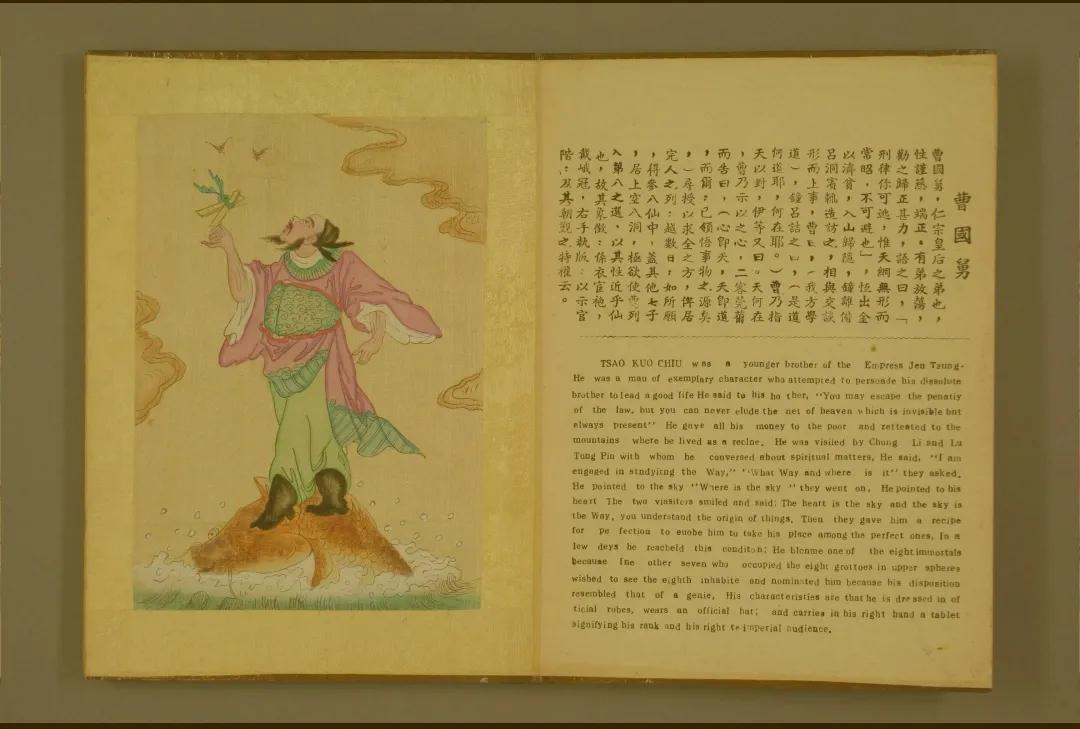 曹國舅
曹國舅，仁宗皇后之弟也，
性謹慈，端正。有弟放蕩，
勸之歸正甚力，語之曰，「
刑律你可逃，惟天網無形而
常昭，不可避也」，恆出金
以濟貧，入山歸隱，鐘離偕
呂洞賓軌造訪之，相與交談
形而上事，曹曰，（我方學
道），鐘呂詰之曰，（是道
何道耶，何在耶。）曹乃指
天以對，伊等又曰。天何在
，曹乃示以之心，二客莞爾
而告曰，（心卽天，天卽道
，而爾：已領悟事物之源矣
，）尋授以求全之方，俾居
完人之列：越數日；如所願
，得參八仙中，蓋其他七子
，居上空八洞，極欲使曹列
入第八之選，以其性近乎仙
也，故其象徵：係衣官袍，
戴峨冠，右手執版：以示官
階：及其朝覲之特權云。
TSAO KUO CHIU was a younger brother of the Empress Jen Tsung.
He was a man of exemplary character who attempted to persuade his dissolute
brother to lead a good life He said to his bo ther, "You may escape the penatiy
of the law, but you can never elude the net of heaven which is invisible but
always present" He gave all his money to the poor and retteated to the
mountains where he lived as a reclne. He was visiied by Chung Li and Lu
Tung Pin with whom he conversed about spiritual matters. He said, "I am
engaged in stndyitng the Way," "What Way and where is it" they asked.
He pointed to the sky "Where is the sky " they went on. He pointed to his
heart The two viasiters smiled and said: The heart is the sky and the sky is
the Way, you understand the origin of things. Then they gave him a recipe
for pe fection to euobe him to take his place among the perfect ones. In a
few deys he reacheld this conditon; He blcnme one of the eight immortals
because fne other seven who occupied the eight grottoes in upper spheres
wished to see the eighth inhabite and nominated him because his disposition
resembled that of a genie. His characteristies are that he is dressed in of
ticial rubes, wears an official hat; and carries in his right hand a tablet
signifying his rank and his right te imperial audience.